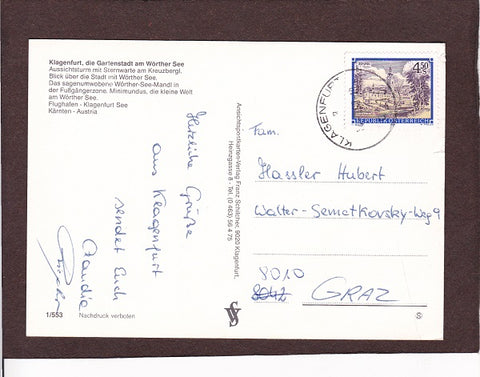 Klagenfurt, die Gartenstadt am Wörther See
Aussichtsturm mit Sternwarte am Kreuzbergl.
Blick über die Stadt mit Wörther See.
Das sagenumwobene Wörther-See-Mandl in
der Fußgängerzone. Minimundus, die kleine Welt
am Wörther See.
Flughafen - Klagenfurt See
Kärnten - Austria
Herzliche Grüße
aus Klagenfurt
sendet Euch
Claudia
1/553
Nachdruck verboten
Ansichtspostkarten-Verlag Franz Schilcher, 9020 Klagenfurt,
KLAGENFURT
4.50
S
REPUBLIK ÖSTERREICH
Fam.
Hassler Hubert
Walter-Semetkovsky-Weg 9
8010
8042
GRAZ